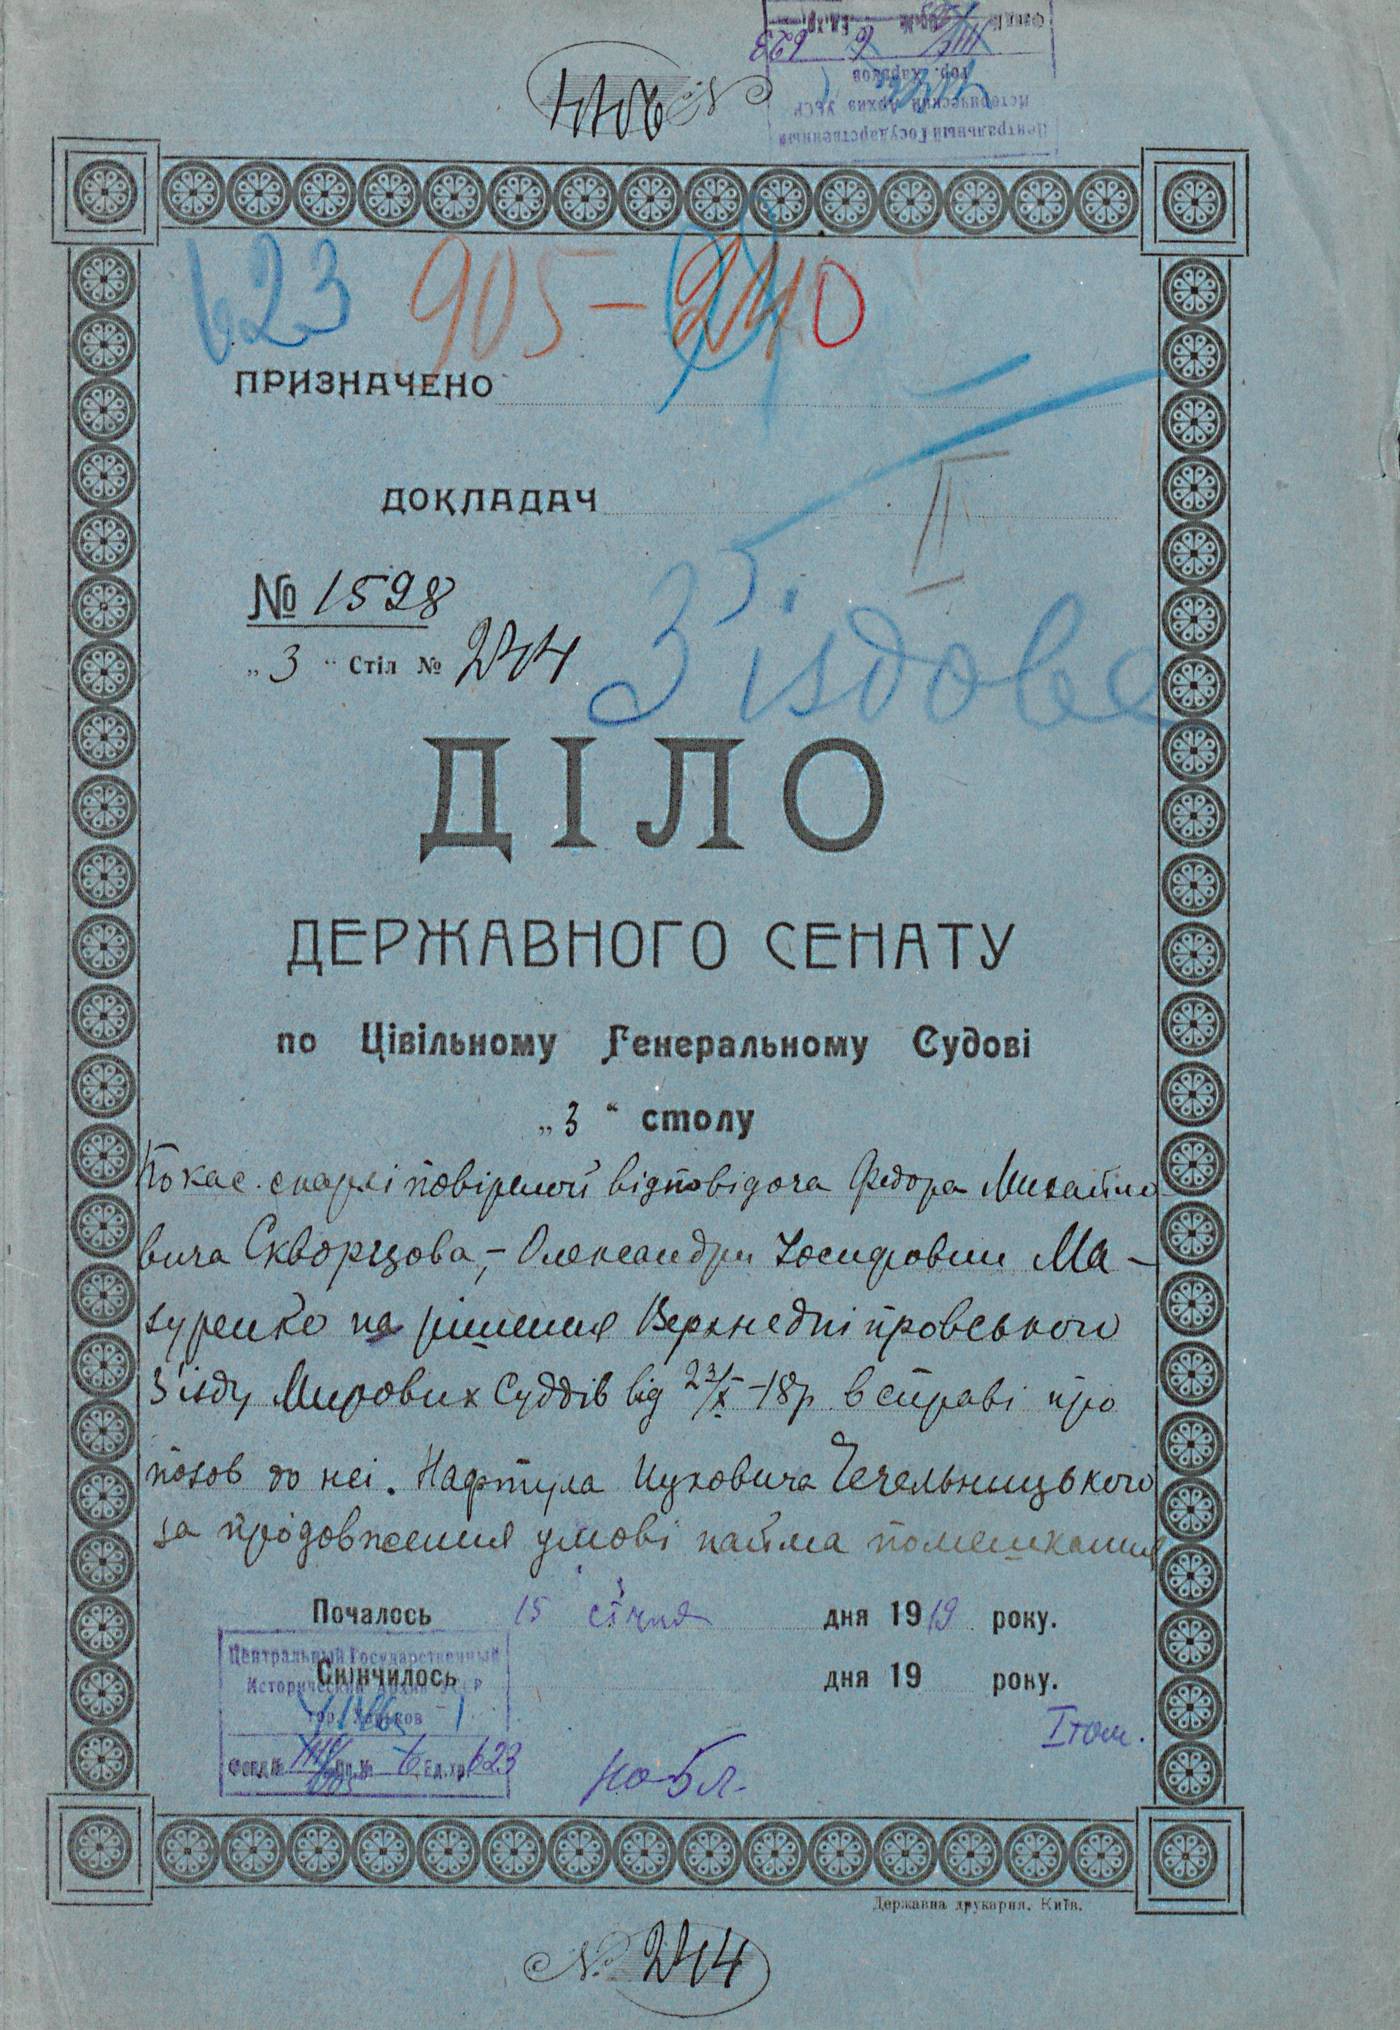 Фонд № Оп. № 6 Ед. хр. 623
гор. Харьков
Исторический Архив УССР
Центральный Государственный
623 905-24 0
ПРИЗНАЧЕНО
ДОКЛАДАЧ
II
№ 1598
„3“ Стіл № 244
З'їздове
ДІЛО
ДЕРЖАВНОГО СЕНАТУ
по Цівільному Генеральному Судові
„3“ столу
По кас. скарзі повіреної відповідача Федора Михайло-
вича Скворцова, - Олександри Иосифовни Ма-
зуренко на рішення Верхнедніпровського
З'їзду Мирових Суддів від 23/X -18р. в справі про
позов до неї. Нафтула Ицховича Чечельницького
за продовження умові найма помешкання
Почалось 15 січня дня 1919 року.
Центральный Государственный
Скінчилось дня 19 року.
Исторический Архив УССР
гор. Харьков
I том.
Фонд № Оп. № 6 Ед. хр. 623
на 5 л.
Державна друкарня, Київ.
№ 244